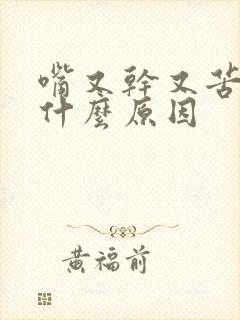 嘴又幹又苦
什麼原因
黃福前